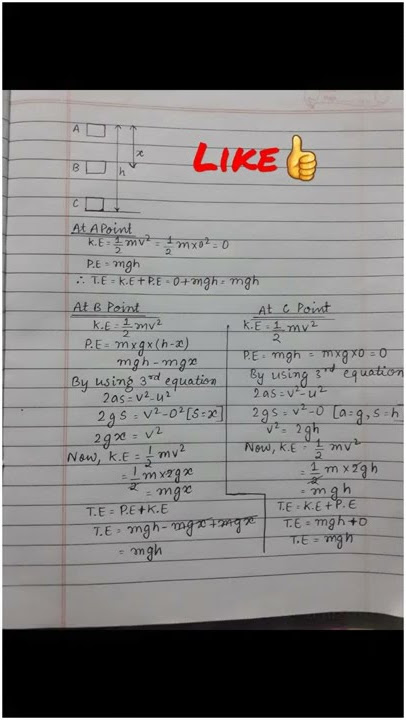 A
x
LIKE👍
B
h
C
At A Point
K.E = 1/2 mv² = 1/2 m×0² = 0
P.E = mgh
∴ T.E = K.E + P.E = 0 + mgh = mgh
At B Point
K.E = 1/2 mv²
P.E = m×g×(h-x)
mgh - mgx
By using 3rd equation
2as = v² - u²
2gs = v² - 0² [s=x]
2gx = v²
Now, K.E = 1/2 mv²
= 1/2 m × 2gx
= mgx
T.E = P.E + K.E
T.E = mgh - mgx + mgx
= mgh
At C Point
K.E = 1/2 mv²
P.E = mgh = m×g×0 = 0
By using 3rd equation
2as = v² - u²
2gs = v² - 0 [a=g, s=h
v² = 2gh
Now, K.E = 1/2 mv²
= 1/2 m × 2gh
= mgh
T.E = K.E + P.E
T.E = mgh + 0
T.E = mgh